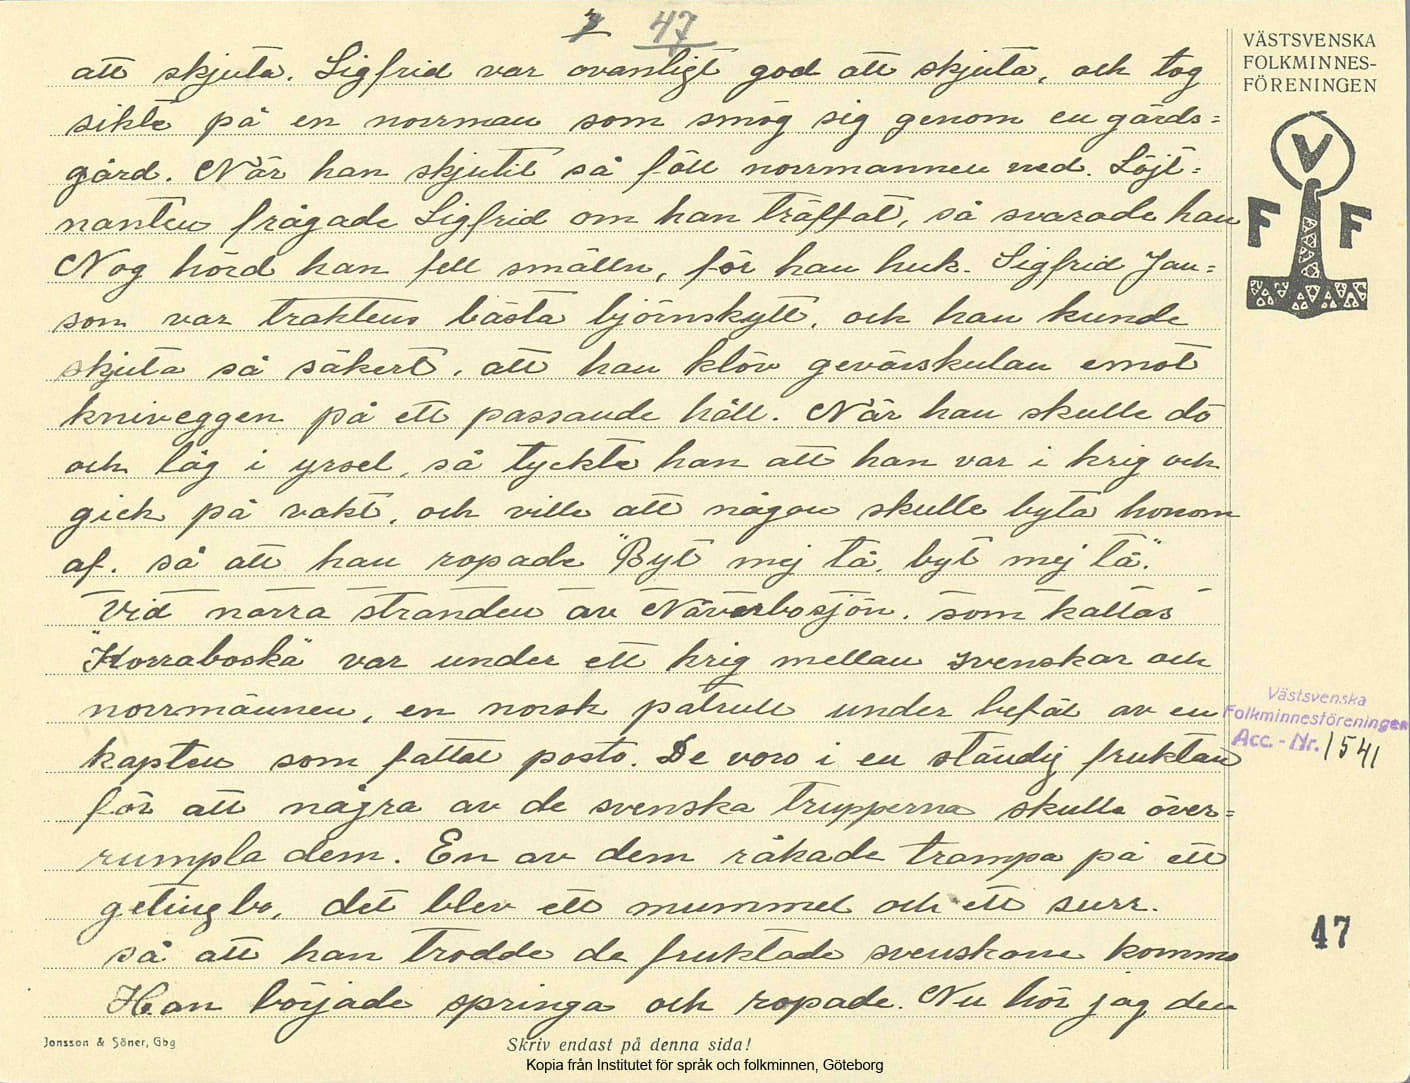 7 47
att skjuta. Sigfrid var ovanligt god att skjuta, och tog
sikte på en norrman som smög sig genom en gärds=
gård. När han skjutit så föll norrmannen ned. Löjt=
nanten frågade Sigfrid om han träffat, så svarade han
Nog hörd han fell smälln, för han huk. Sigfrid Jan=
son var traktens bästa björnskytt, och han kunde
skjuta så säkert, att han klöv gevärskulan emot
kniveggen på ett passande håll. När han skulle dö
och låg i yrsel, så tyckte han att han var i krig och
gick på vakt, och ville att någon skulle byta honom
af. så att han ropade "Byt mej tå, byt mej tå".
Vid norra stranden av Näverbosjön, som kallas
"Korraboskä" var under ett krig mellan svenskar och
norrmännen, en norsk patrull under befäl av en
kapten som fattat posto. De voro i en ständig fruktan
för att några av de svenska trupperna skulle över=
rumpla dem. En av dem råkade trampa på ett
getingbo, det blev ett mummel och ett surr.
så att han trodde de fruktade svenskarne komma
Han började springa och ropade. Nu hör jag den
VÄSTSVENSKA
FOLKMINNES-
FÖRENINGEN
V
F F
Västsvenska
Folkminnesföreningen
Acc.-Nr. 1541
47
Jonsson & Söner, Gbg
Skriv endast på denna sida!
Kopia från Institutet för språk och folkminnen, Göteborg